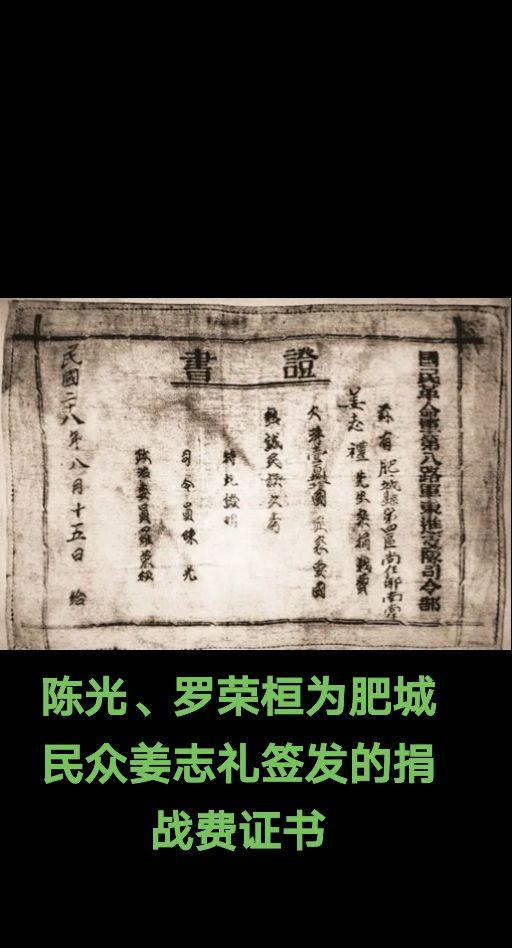 國民革命軍第八路軍東進支隊司令部
證書
茲有肥城縣第四區尚任鄉南堂
姜志禮先生樂捐戰費
大洋壹 圓 愛國
熱誠民族
特此證明
司令員陳光
政治委員羅榮桓
民國二十八年八月十五日 給
陈光、罗荣桓为肥城
民众姜志礼签发的捐
战费证书